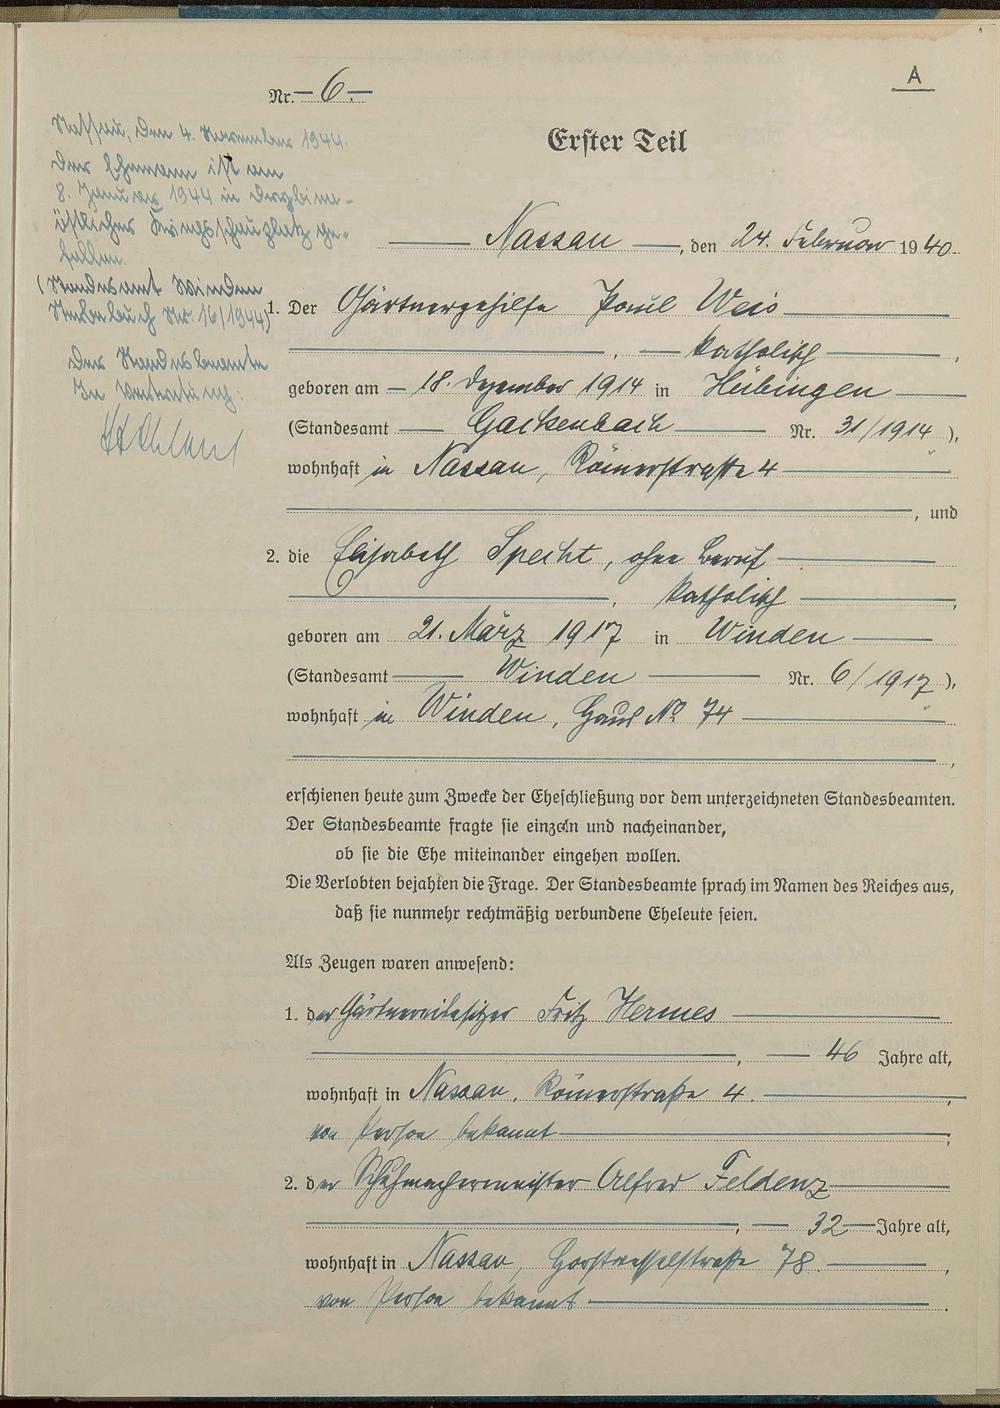 A
Nr. – 6. –
Erster Teil
Nassau, den 4. November 1944.
Der Ehemann ist am
8. Januar 1944 in
östlicher Kriegsschauplatz ge-
fallen.
(Standesamt Winden
Sterbebuch Nr. 16/1944)
Der Standesbeamte
In Vertretung:
Nassau, den 24. Februar 1940.
1. Der Gärtnergehilfe Paul Weis
, katholisch,
geboren am – 18. Dezember 1914 in Hübingen
(Standesamt Gackenbach Nr. 31/1914),
wohnhaft in Nassau, Römerstraße 4
, und
2. die Elisabeth Specht, ohne Beruf
, katholisch,
geboren am 21. März 1917 in Winden
(Standesamt Winden Nr. 6/1917),
wohnhaft in Winden, Haus No 74
,
erschienen heute zum Zwecke der Eheschließung vor dem unterzeichneten Standesbeamten.
Der Standesbeamte fragte sie einzeln und nacheinander,
ob sie die Ehe miteinander eingehen wollen.
Die Verlobten bejahten die Frage. Der Standesbeamte sprach im Namen des Reiches aus,
daß sie nunmehr rechtmäßig verbundene Eheleute seien.
Als Zeugen waren anwesend:
1. der Gärtnereibesitzer Fritz Hermes
, 46 Jahre alt,
wohnhaft in Nassau, Römerstraße 4.,
von Person bekannt;
2. der Schuhmachermeister Alfred Feldenz
, 32 Jahre alt,
wohnhaft in Nassau, Horstwesselstraße 78.,
von Person bekannt.